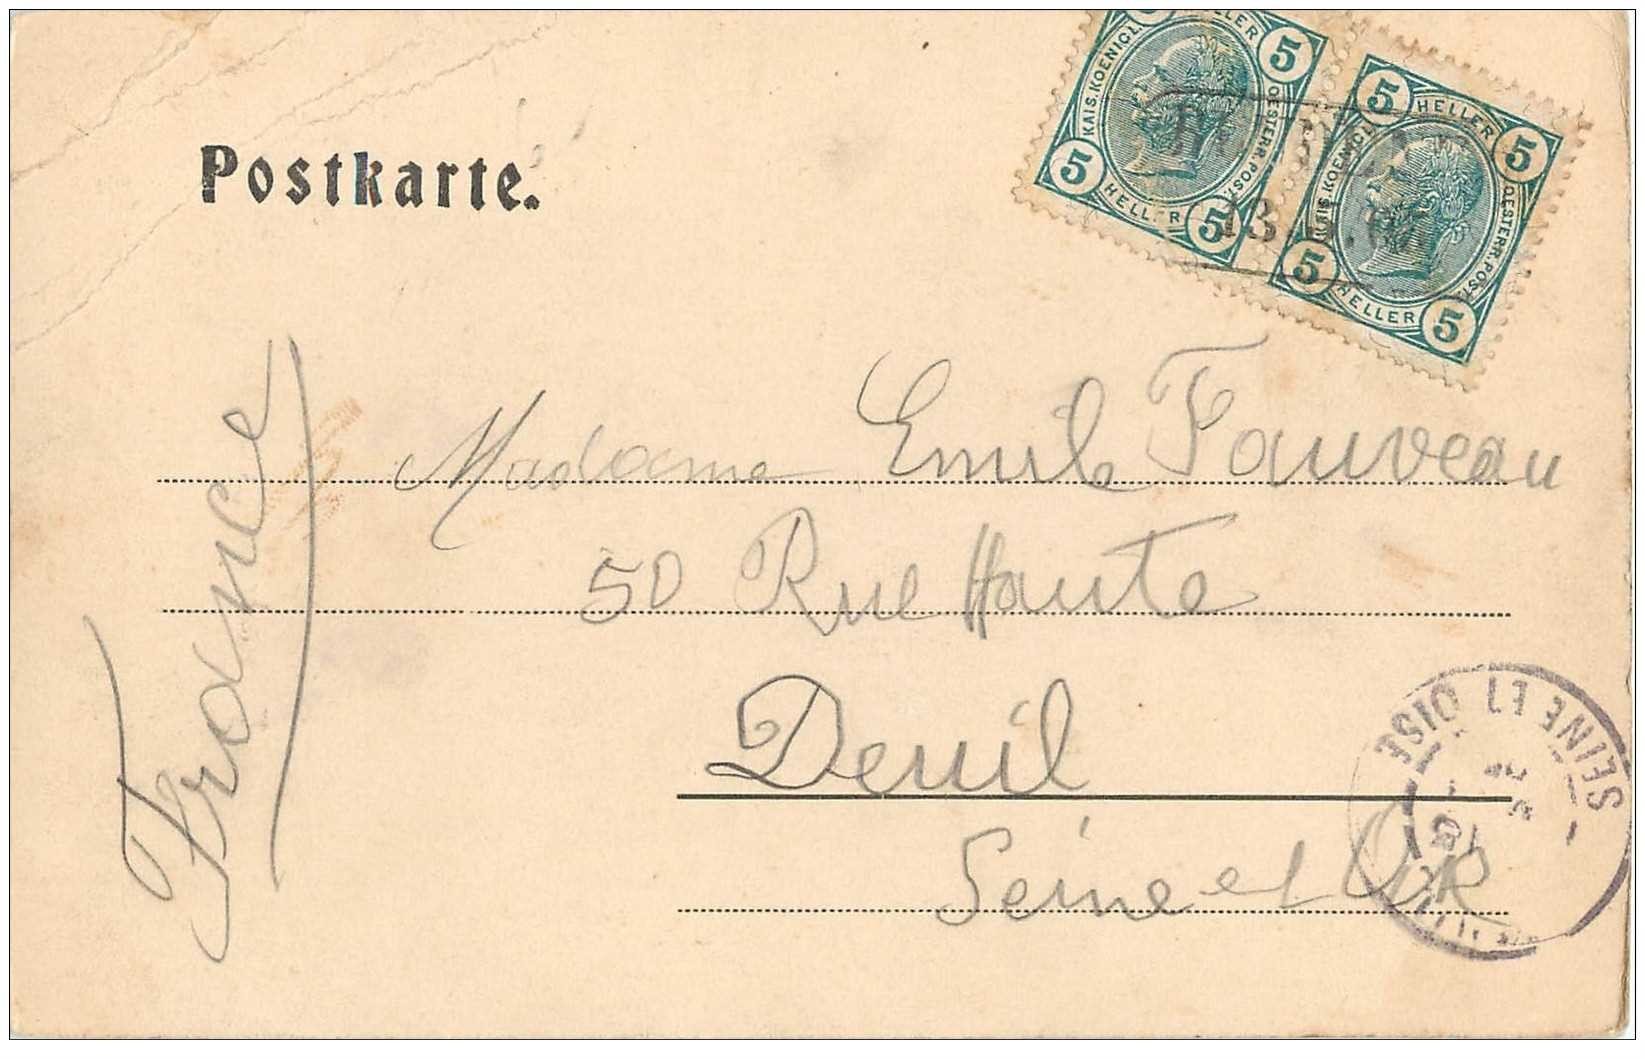 Postkarte.
5 HELLER 5
KAIS. KOENIGL. OESTERR. POST.
5 HELLER 5
5 HELLER 5
KAIS. KOENIGL. OESTERR. POST.
5 HELLER 5
13.
Madame Emile Fauveau
50 Rue Haute
Deuil
Seine et
France
SEINE ET OISE